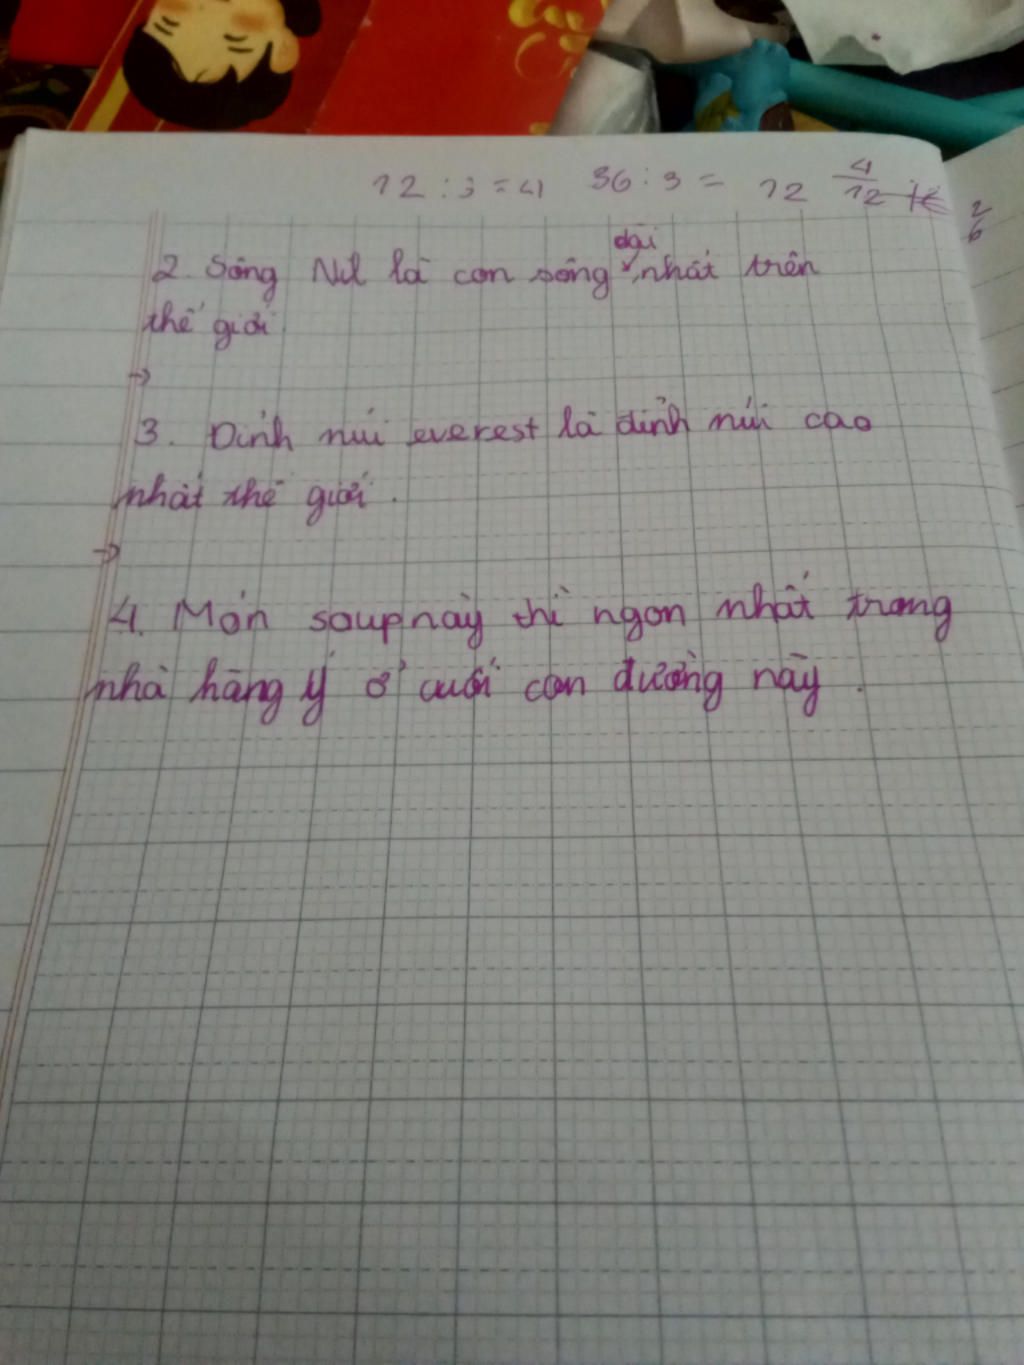 12 : 3 = 4 36 : 3 = 12 4/12
2/6
2. Sông Nil là con sông dài nhất trên
thế giới
→
3. Đỉnh núi everest là đỉnh núi cao
nhất thế giới.
→
4. Món soup này thì ngon nhất trong
nhà hàng ý ở cuối con đường này.